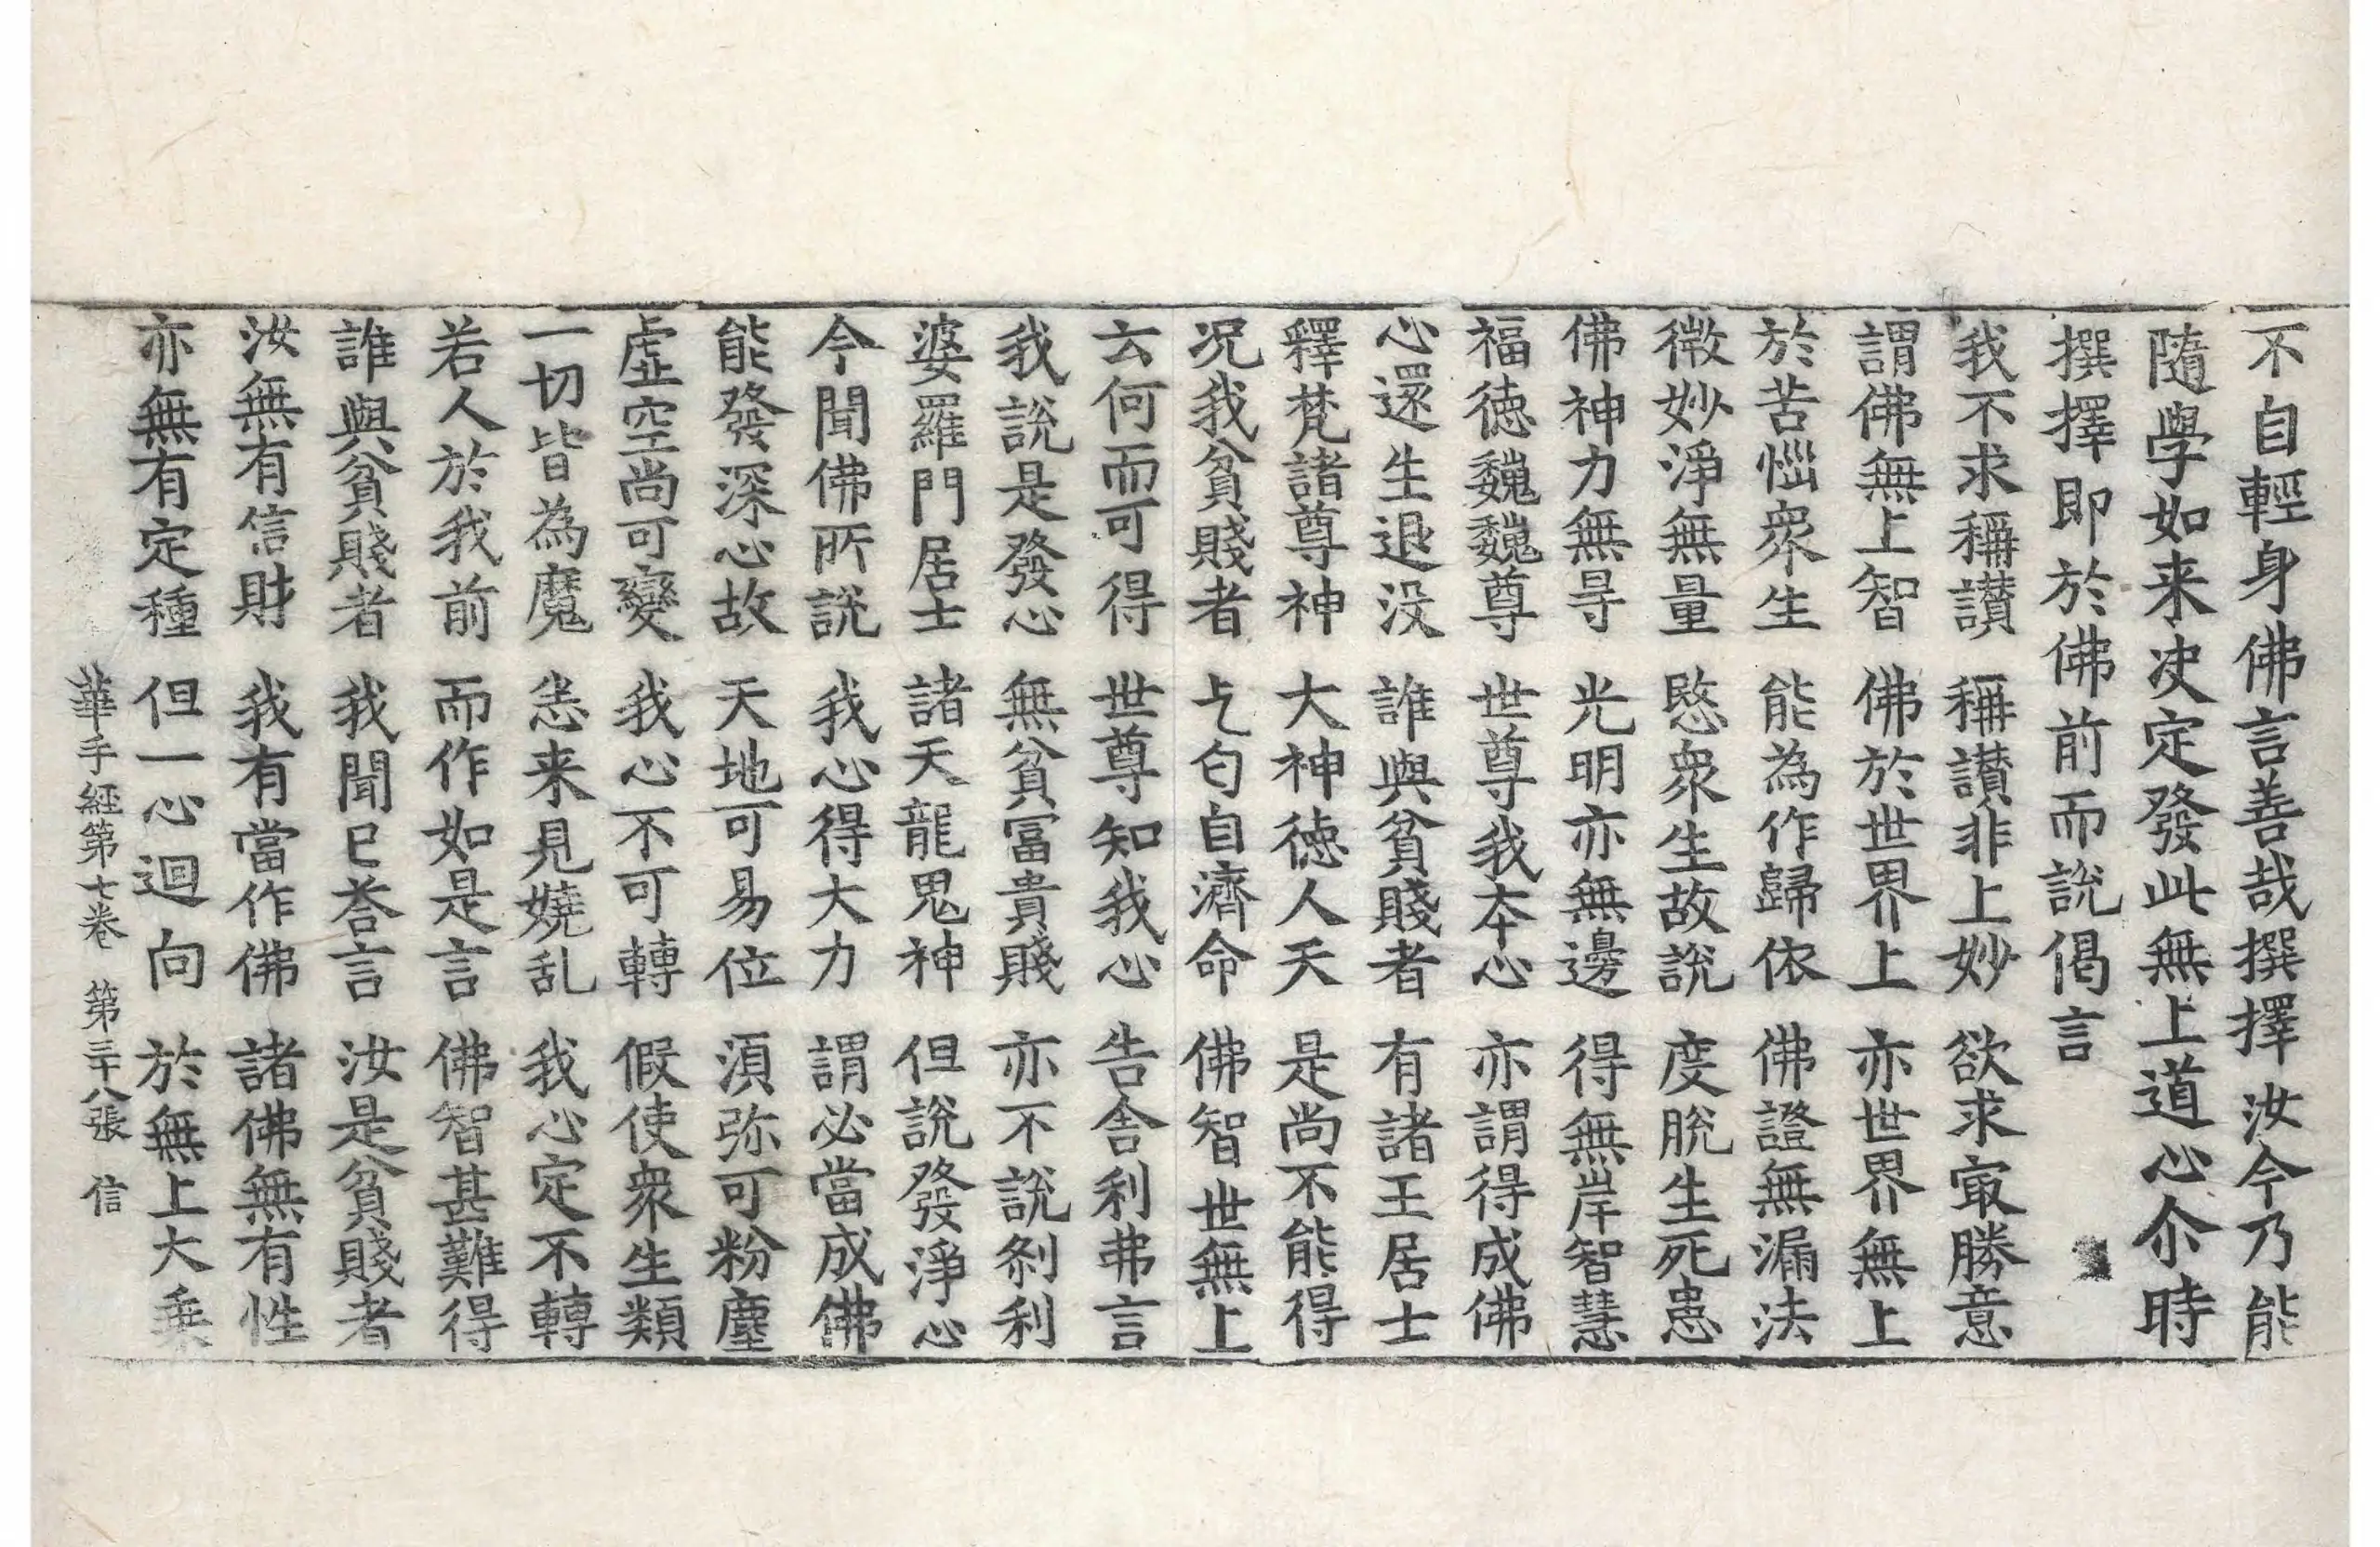 不自輕身佛言善哉撰擇汝今乃能
隨學如来决定發此無上道心尒時
撰擇即於佛前而說偈言
我不求稱讃 稱讃非上妙 欲求㝡勝意
謂佛無上智 佛於世界上 亦世界無上
於苦惱衆生 能為作歸依 佛證無漏法
微妙淨無量 愍衆生故說 度脫生死患
佛神力無㝵 光明亦無邊 得無岸智慧
福徳巍巍尊 世尊我本心 亦謂得成佛
心還生退没 誰與貧賤者 有諸王居士
釋梵諸尊神 大神徳人天 是尚不能得
况我貧賤者 乞匃自濟命 佛智世無上
云何而可得 世尊知我心 告舎利弗言
我說是發心 無貧冨貴賤 亦不說刹利
婆羅門居士 諸天龍鬼神 但說發淨心
今聞佛所說 我心得大力 謂必當成佛
能發深心故 天地可易位 湏弥可粉塵
虛空尚可變 我心不可轉 假使衆生類
一切皆為魔 恙来見嬈乱 我心定不轉
若人於我前 而作如是言 佛智甚難得
誰與貧賤者 我聞已荅言 汝是貧賤者
汝無有信財 我有當作佛 諸佛無有性
亦無有定種 但一心迴向 於無上大乗
華手經第七卷 第三十八張 信